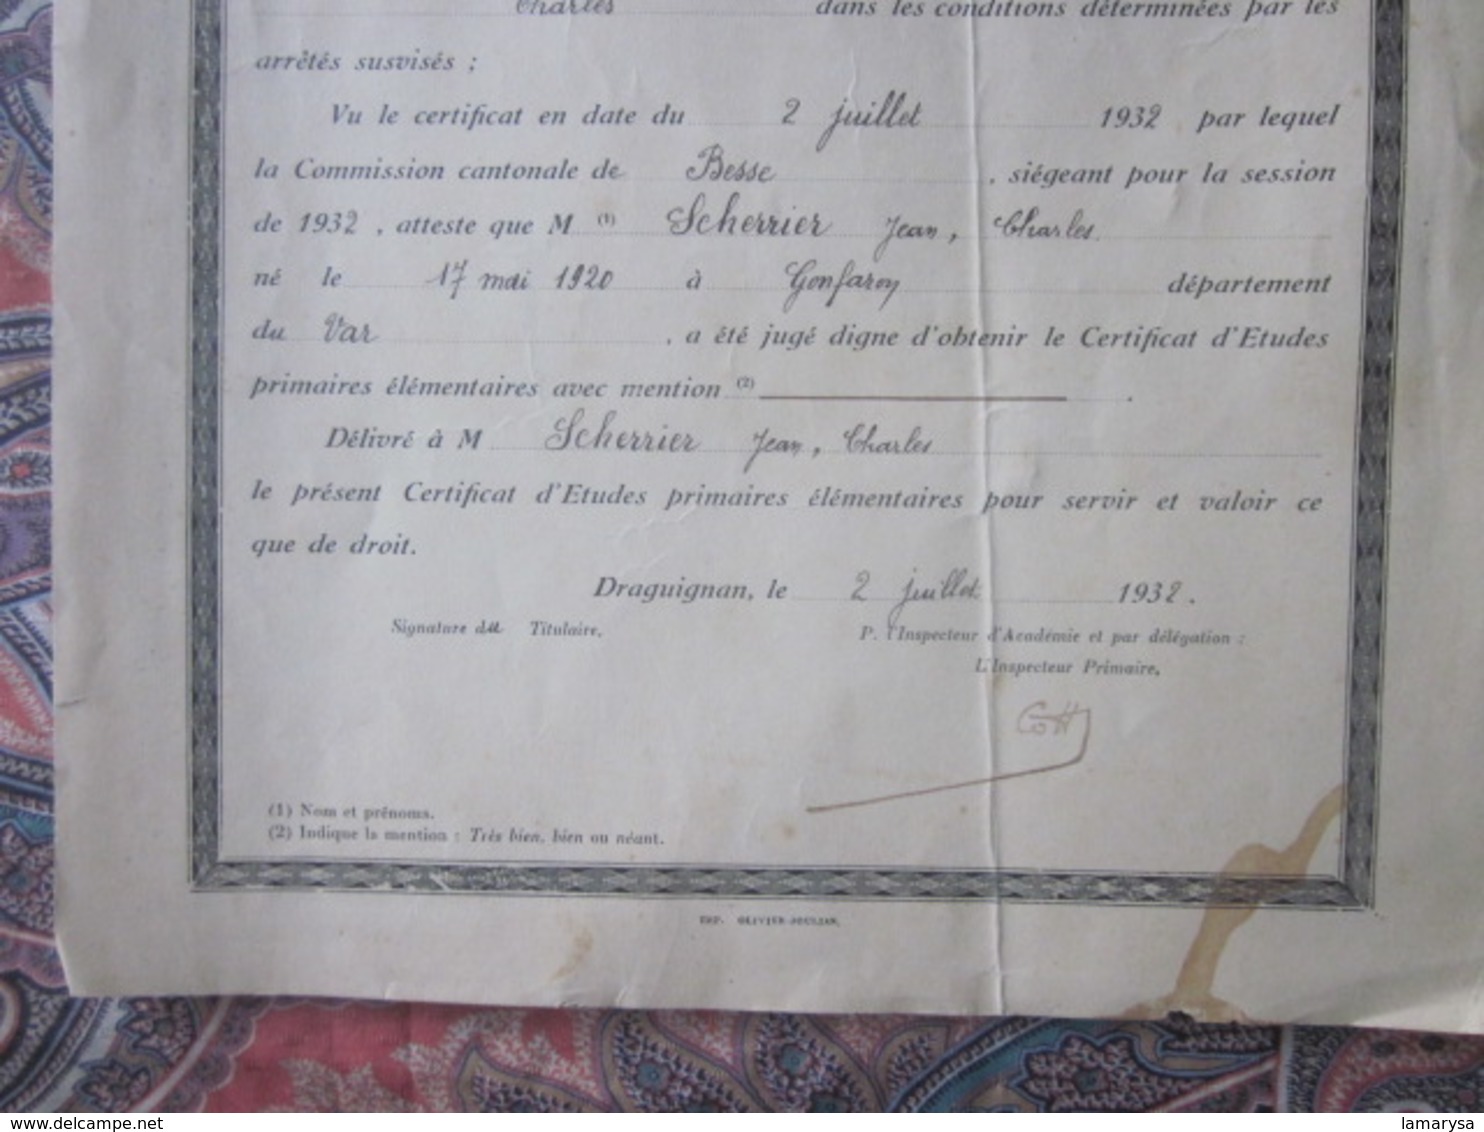 Charles dans les conditions déterminées par les
arrêtés susvisés ;
Vu le certificat en date du 2 juillet 1932 par lequel
la Commission cantonale de Besse , siégeant pour la session
de 1932 , atteste que M (1) Scherrier Jean, Charles
né le 17 mai 1920 à Gonfaron département
du Var , a été jugé digne d'obtenir le Certificat d'Etudes
primaires élémentaires avec mention (2) .
Délivré à M Scherrier Jean, Charles
le présent Certificat d'Etudes primaires élémentaires pour servir et valoir ce
que de droit.
Draguignan, le 2 juillet 1932.
Signature du Titulaire,
P. l'Inspecteur d'Académie et par délégation :
L'Inspecteur Primaire,
(1) Nom et prénoms.
(2) Indique la mention : Très bien, bien ou néant.
IMP. OLIVIER-JOULIAN.
delcampe.net
lamarysa